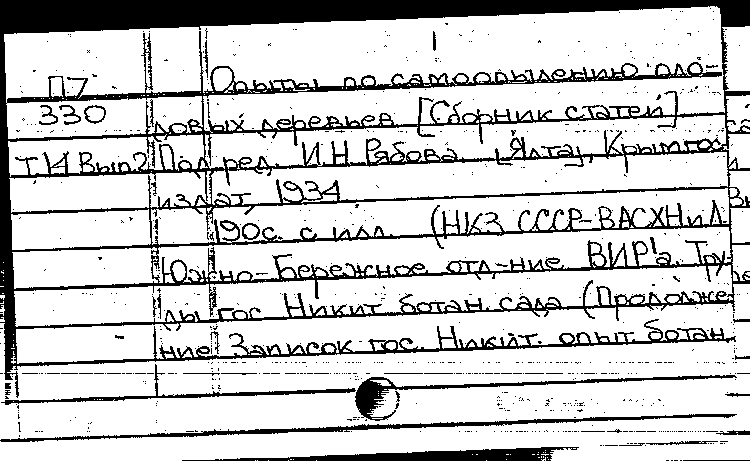 1
П7 Опыты по самоопылению пло-
330 довых деревьев [Сборник статей]
Т.14 Вып.2 Под ред. И.Н Рябова. [Ялта], Крымгос
издат, 1934.
190с. с илл. (НКЗ СССР-ВАСХНиЛ
Южно-Бережное отд-ние ВИР'а. Тру-
ды гос Никит ботан. сада (Продолже-
ние Записок гос. Никит. опыт. ботан.